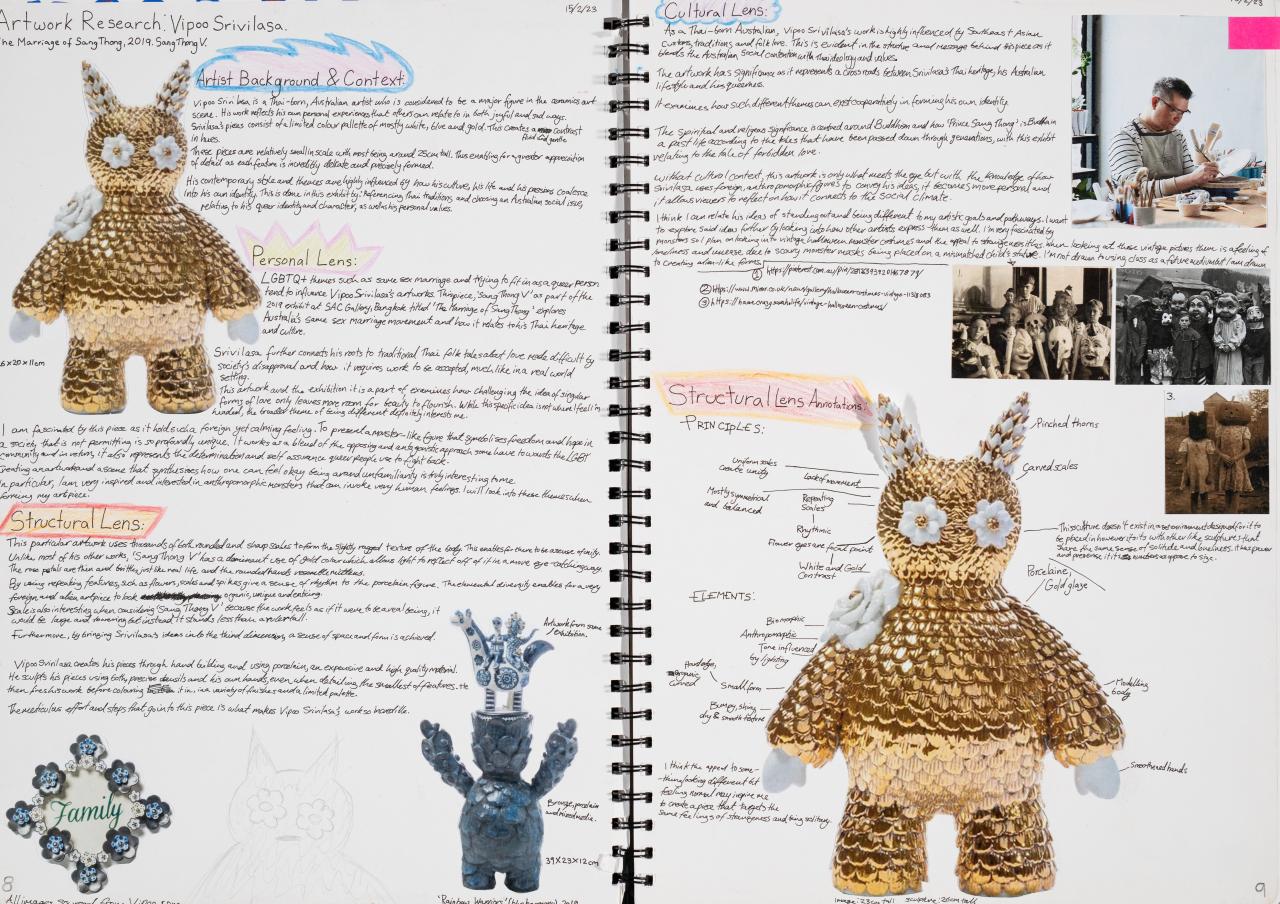 15/2/23
Artwork Research: Vipoo Srivilasa.
The Marriage of Sang Thong, 2019. Sang Thong V.
Artist Background & Context:
Vipoo Srivilasa is a Thai-born, Australian artist who is considered to be a major figure in the ceramics art
scene. His work reflects his own personal experiences that others can relate to in both joyful and sad ways.
Srivilasa's pieces consist of a limited colour pallette of mostly white, blue and gold. This creates a contrast
in hues.
These pieces are relatively small in scale with most being around 25cm tall. This enabling for a greater appreciation
of detail as each feature is incredibly delicate and precisely formed.
His contemporary style and themes are highly influenced by how his culture, his life and his passions coalesce
into his own identity. This is done in this exhibit by: Referencing Thai traditions and choosing an Australian social issue,
relating to his queer identity and character, as well as his personal values.
Personal Lens:
LGBTQ+ themes such as same sex marriage and trying to fit in as a queer person
tend to influence Vipoo Srivilasa's artworks. This piece, 'Sang Thong V' as part of the
2019 exhibit at SAC Gallery, Bangkok titled 'The Marriage of Sang Thong' explores
Australia's same sex marriage movement and how it relates to his Thai heritage
and culture.
6x20x11cm
Srivilasa further connects his roots to traditional Thai folk tales about love made difficult by
society's disapproval and how it requires work to be accepted, much like in a real world
setting.
This artwork and the exhibition it is a part of examines how challenging the idea of singular
forms of love only leaves more room for beauty to flourish. While this specific idea is not where I feel im
headed, the broader theme of being different definitely interests me.
I am fascinated by this piece as it holds such a foreign yet calming feeling. To present a monster-like figure that symbolises freedom and hope in
a society that is not permitting is so profoundly unique. It works as a blend of the opposing and antagonistic approach some have towards the LGBT
community and in return, it also represents the determination and self assurance queer people use to fight back.
Creating an artwork and a scene that synthesises how one can feel okay being around unfamiliarity is truly interesting to me.
In particular, I am very inspired and interested in anthropomorphic monsters that can invoke very human feelings. I will look into these themes when
forming my art piece.
Structural Lens:
This particular artwork uses thousands of both rounded and sharp scales to form the slightly ragged texture of the body. This enables for there to be a sense of unity.
Unlike most of his other works, 'Sang Thong V' has a dominant use of gold colour which allows light to reflect off of it in a more eye-catching way.
The rose petals are thin and brittle, just like real life and the rounded hands resemble mittens.
By using repeating features, such as flowers, scales and spikes give a sense of rhythm to the porcelain figure. The elemental diversity enables for a very
foreign and alien art piece to look organic, unique and enticing.
Scale is also interesting when considering 'Sang Thong V' because the work feels as if it were to be a real being, it
would be large and towering but instead it stands less than a ruler tall.
Furthermore, by bringing Srivilasa's ideas into the third dimension, a sense of space and form is achieved.
Vipoo Srivilasa creates his pieces through hand building and using porcelain, an expensive and high quality material.
He sculpts his pieces using both precise utensils and his own hands, even when detailing the smallest of features. He
then fires his work before colouring it in, in a variety of finishes and a limited palette.
The meticulous effort and steps that go into this piece is what makes Vipoo Srivilasa's work so incredible.
Artwork from same
exhibition.
Family
Bronze, porcelain
and mixed media.
39x23x12cm
8
Cultural Lens:
As a Thai-born Australian, Vipoo Srivilasa's work is highly influenced by Southeast Asian
customs, traditions, and folk love. This is evident in the stories and message behind his piece as it
blends the Australian social contention with Thai ideology and values.
The artwork has significance as it represents a cross roads between Srivilasa's Thai heritage, his Australian
lifestyle and his queerness.
It examines how such different themes can exist cooperatively in forming his own identity.
The spiritual and religious significance is centred around Buddhism and how 'Prince Sang Thong' is Buddha in
a past life according to the tales that have been passed down through generations, with this exhibit
relating to the tale of forbidden love.
Without cultural context, this artwork is only what meets the eye but with the knowledge of how
Srivilasa uses foreign, anthropomorphic figures to convey his ideas, it becomes more personal and
it allows viewers to reflect on how it connects to the social climate.
I think I can relate his ideas of standing out and being different to my artistic goals and pathways. I want
to explore said ideas further by looking into how other artists express them as well. I'm very fascinated by
monsters so I plan on looking into vintage halloween monster costumes and the appeal to strangeness
when looking at these vintage pictures there is a feeling of
loneliness and unease due to scary monster masks being placed on a mismatched child's stature.
to creating alien-like forms.
1
2
3
1.
3.
Structural Lens Annotations:
PRINCIPLES:
Pinched thorns
Carved scales
Uniform scales
create unity
Lack of movement
Mostly symmetrical
and balanced
Repeating
Scales
Rhythmic
Flower eyes are focal point
White and Gold
Contrast
This sculture doesn't exist in a set environment designed for it to
be placed in however it sits with other like sculptures that
share the same sense of solitude and loneliness.
Porcelaine,
Gold glaze
ELEMENTS:
Biomorphic
Anthropomorphic
Tone influenced
by lighting
organic,
curved
Small form
Bumpy, shiny,
dry & smooth texture
Modelling
body
Smoothened hands
I think the appeal to some-
-thing looking different but
feeling normal may inspire me
to create a piece that targets the
same feelings of strangeness and being solitary.
image: 23cm tall
sculpture: 26cm tall
9